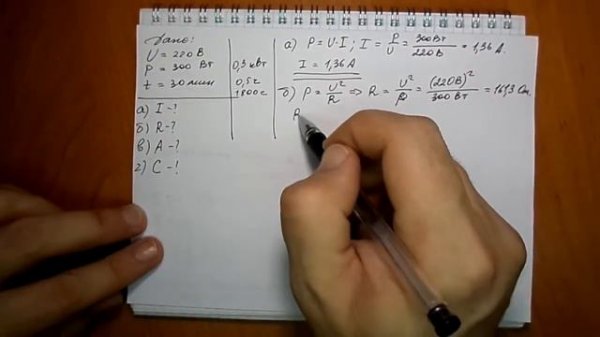 Дано:
U = 220 В
P = 300 Вт
t = 30 мин
а) I - ?
б) R - ?
в) A - ?
г) C - ?
0,3 кВт
0,5 г
1800 с
а) P = U · I ; I = P/U = 300 Вт/220 В = 1,36 А.
I = 1,36 А
б) P = U²/R => R = U²/P = (220 В)²/300 Вт = 161,3 Ом.
R